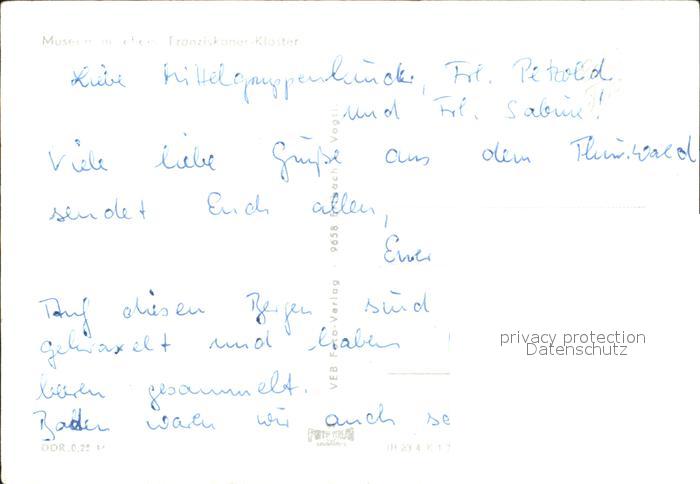 Museum im ehem. Franziskaner-Kloster
Liebe Mittelgruppenkinder, Frl. Petzold
und Frl. Sabine!
Viele liebe Grüße aus dem Thür. Wald
sendet Euch allen,
Euer
Auf diesen Bergen sind
gekraxelt und haben
beeren gesammelt.
Baden waren wir auch se
VEB Foto-Verlag · 9658 Erlbach Vogtl.
privacy protection
Datenschutz
DDR 0,25 M